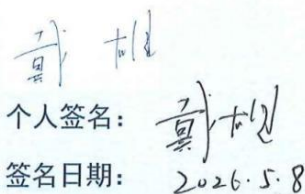 戴
个人签名：戴
签名日期：2026.5.8